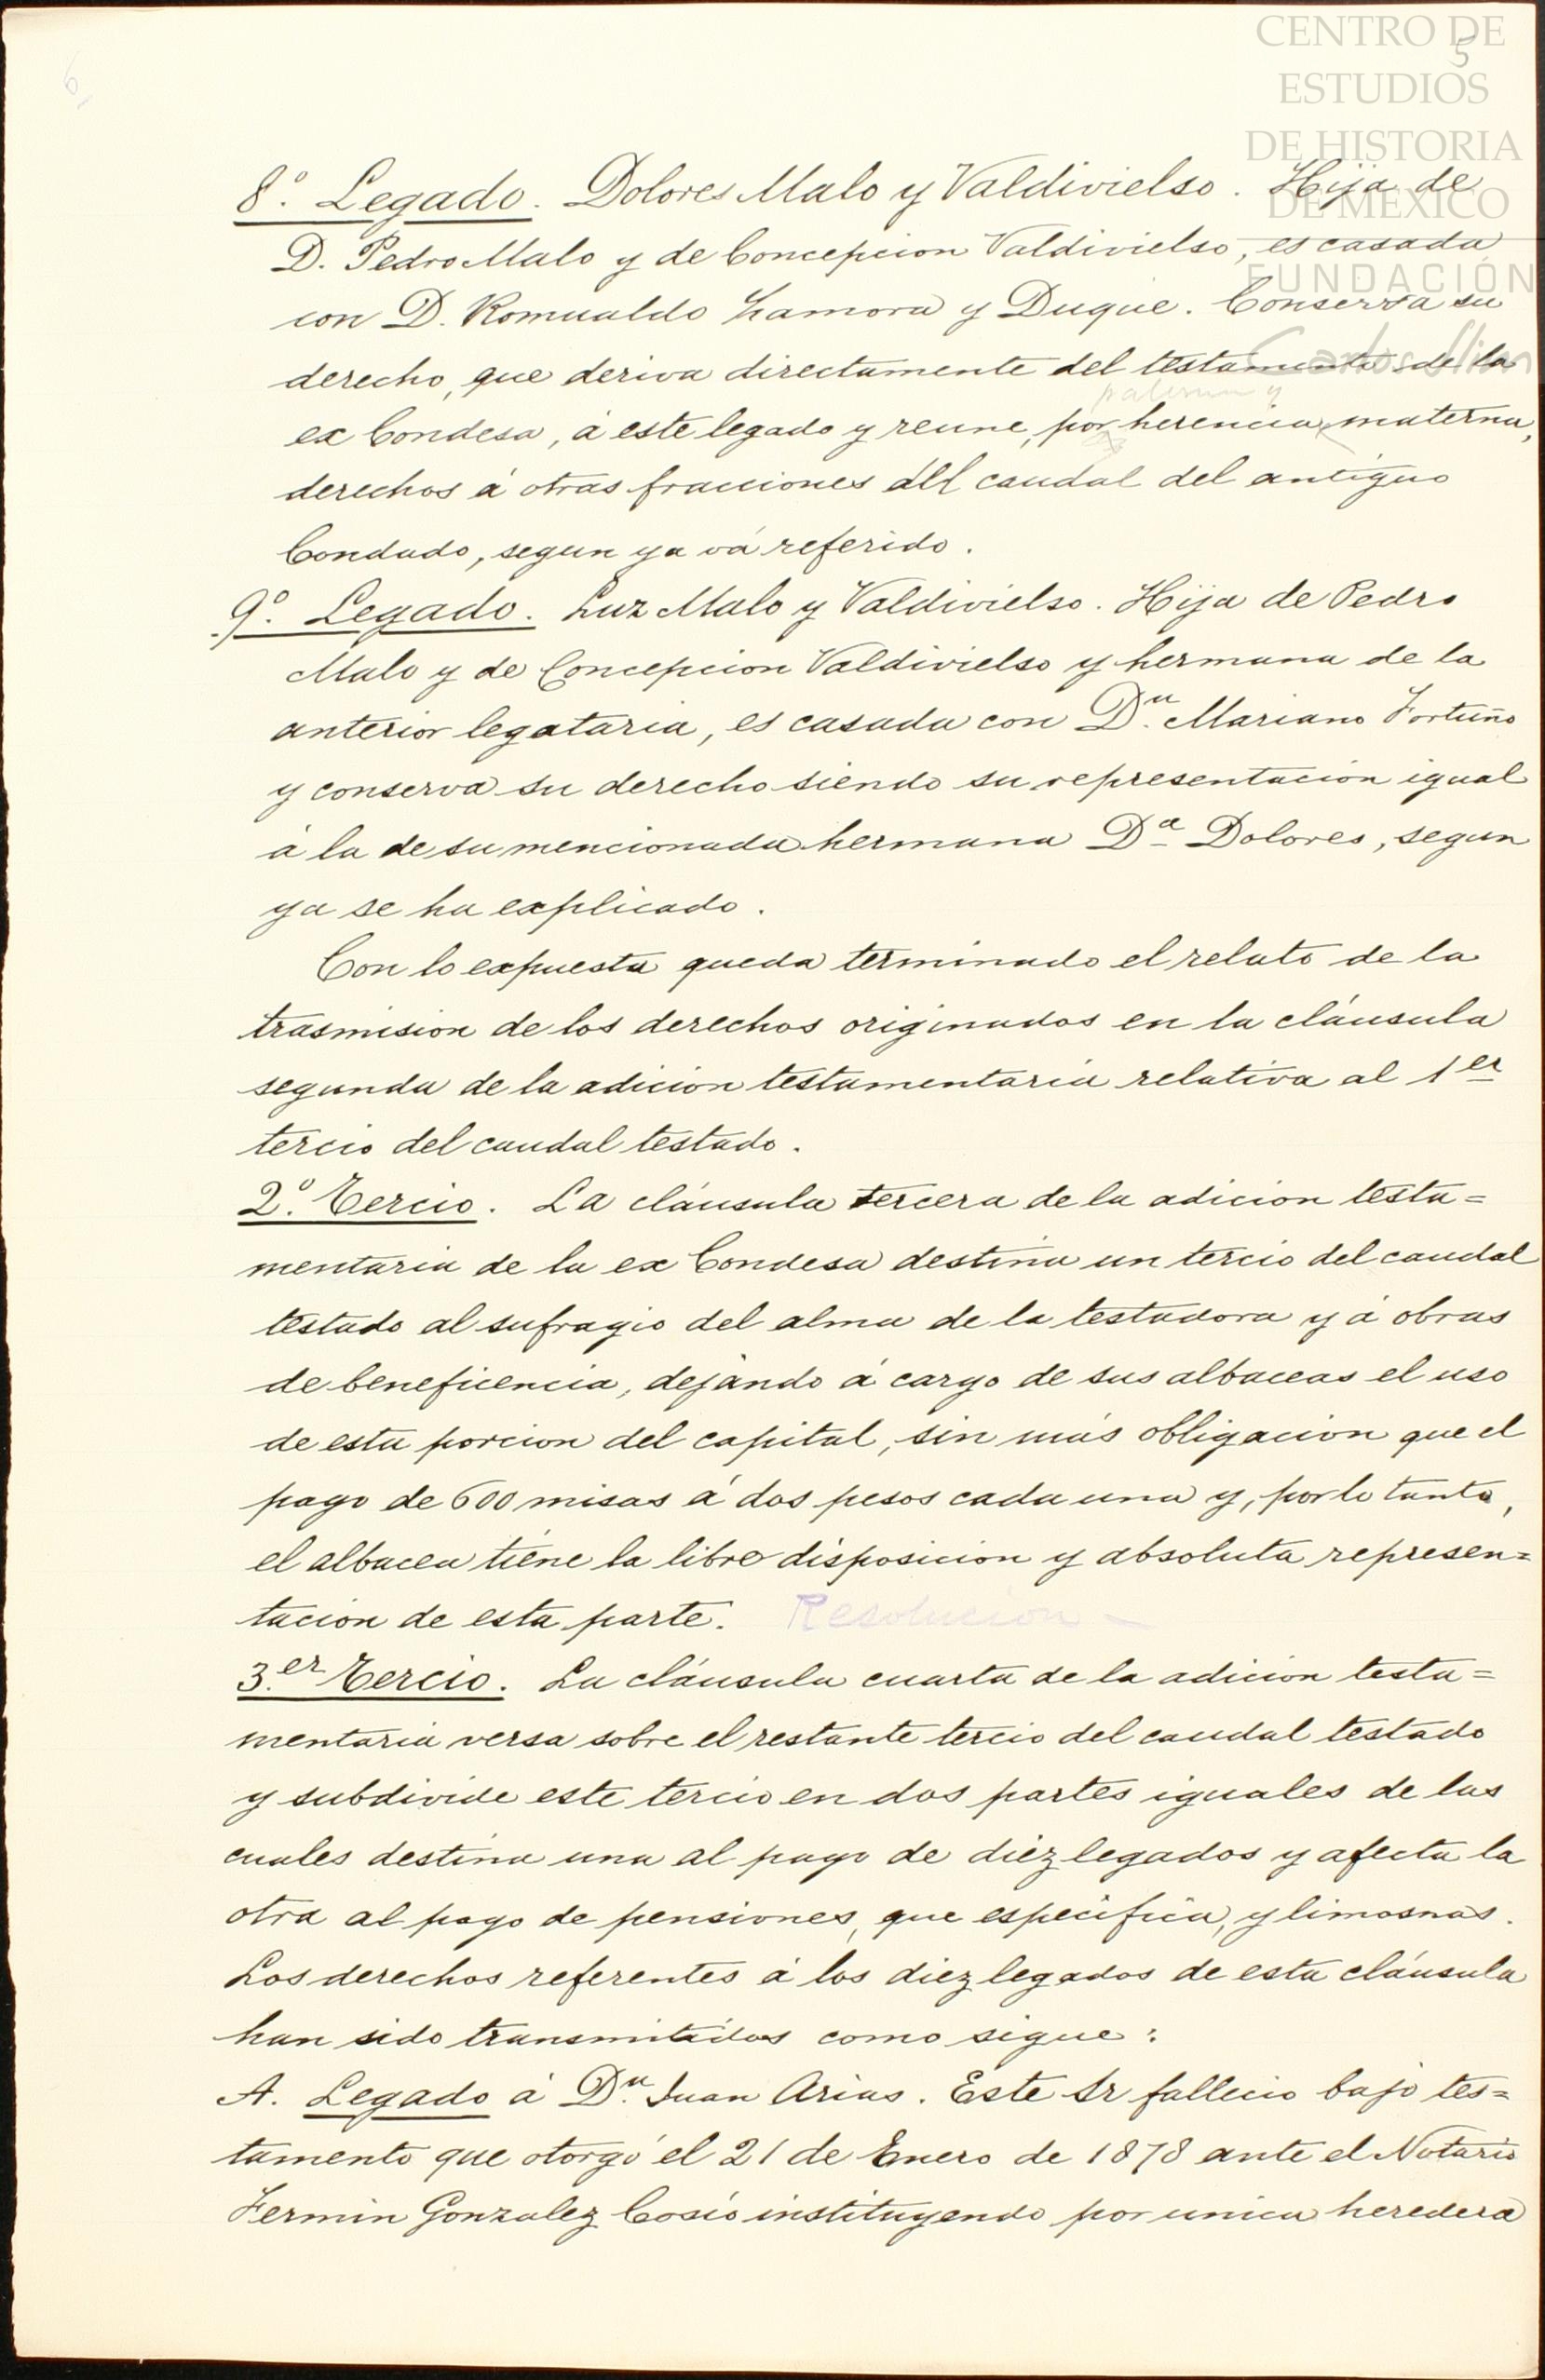 6
5
CENTRO DE
ESTUDIOS
DE HISTORIA
DE MÉXICO
FUNDACIÓN
Carlos Slim
8.º Legado. Dolores Malo y Valdivielso. Hija de
D. Pedro Malo y de Concepcion Valdivielso, es casada
con D. Romualdo Zamora y Duque. Conserva su
derecho, que deriva directamente del testamento de la
paterna y
ex Condesa, á este legado y reune, por herencia materna,
derechos á otras fracciones del caudal del antiguo
Condado, segun ya vá referido.
9.º Legado. Luz Malo y Valdivielso. Hija de Pedro
Malo y de Concepcion Valdivielso y hermana de la
anterior legataria, es casada con D.n Mariano Fortuño
y conserva su derecho siendo su representacion igual
á la de su mencionada hermana D.a Dolores, segun
ya se ha explicado.
Con lo expuesto queda terminado el relato de la
trasmision de los derechos originados en la cláusula
segunda de la adicion testamentaria relativa al 1er
tercio del caudal testado.
2.º Tercio. La cláusula tercera de la adicion testa=
mentaria de la ex Condesa destina un tercio del caudal
testado al sufragio del alma de la testadora y á obras
de beneficencia, dejando á cargo de sus albaceas el uso
de esta porcion del capital, sin más obligacion que el
pago de 600 misas á dos pesos cada una y, por lo tanto,
el albacea tiene la libre disposicion y absoluta represen=
tacion de esta parte. Resolucion -
3.er Tercio. La cláusula cuarta de la adicion testa=
mentaria versa sobre el restante tercio del caudal testado
y subdivide este tercio en dos partes iguales de las
cuales destina una al pago de diez legados y afecta la
otra al pago de pensiones, que especifica, y limosnas.
Los derechos referentes á los diez legados de esta cláusula
han sido transmitidos como sigue:
A. Legado á D.n Juan Arias. Este Sr falleció bajo tes=
tamento que otorgó el 21 de Enero de 1878 ante el Notario
Fermin Gonzalez Cosio instituyendo por unica heredera